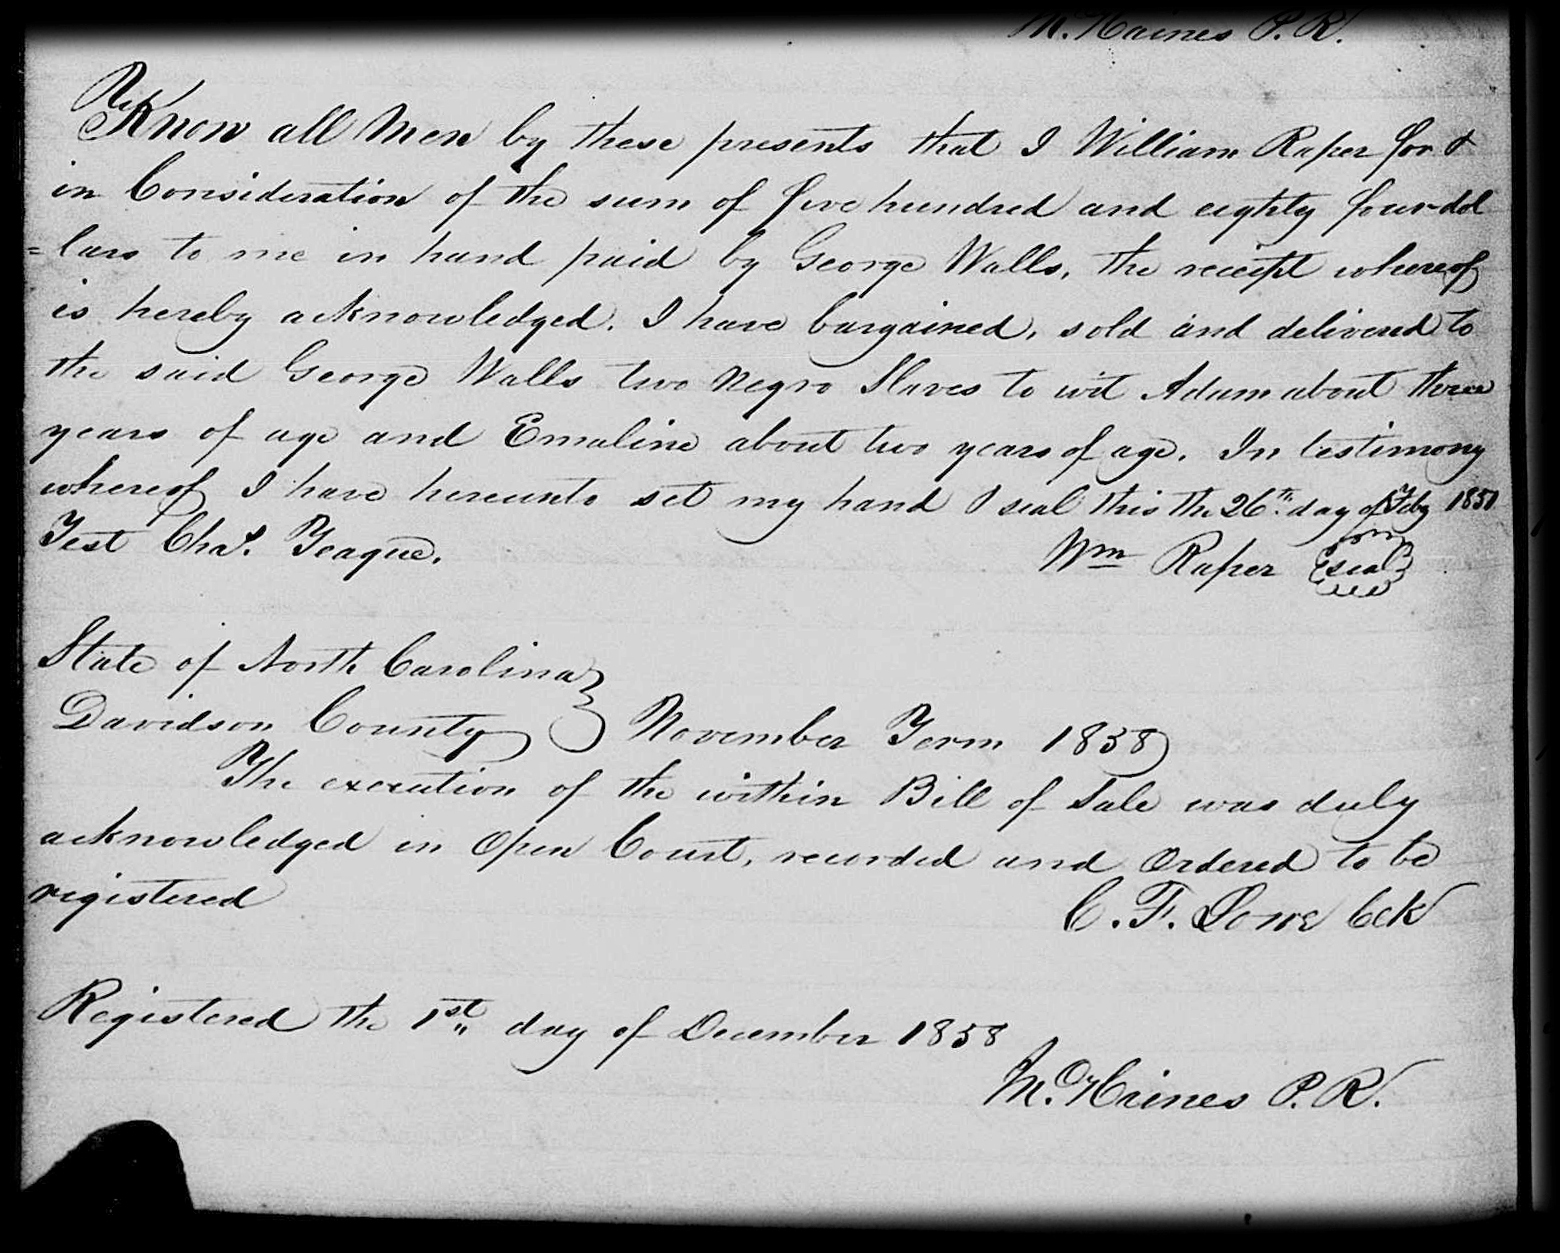 M. Haines P. R.
Know all Men by these presents that I William Raper for &
in Consideration of the sum of five hundred and eighty four dol
=lars to me in hand paid by George Walls, the receipt whereof
is hereby acknowledged. I have bargained, sold and delivered to
the said George Walls two Negro Slaves to wit Adam about three
years of age and Emaline about two years of age. In testimony
whereof I have hereunto set my hand & seal this the 26th day of Feby
Test Chas. Teague.
Wm Raper seal
State of North Carolina
Davidson County } November Term 1858
The execution of the within Bill of Sale was duly
acknowledged in Open Court, recorded and Ordered to be
registered
C. F. Lowe Cck
Registered the 1st day of December 1858
M. Haines P. R.